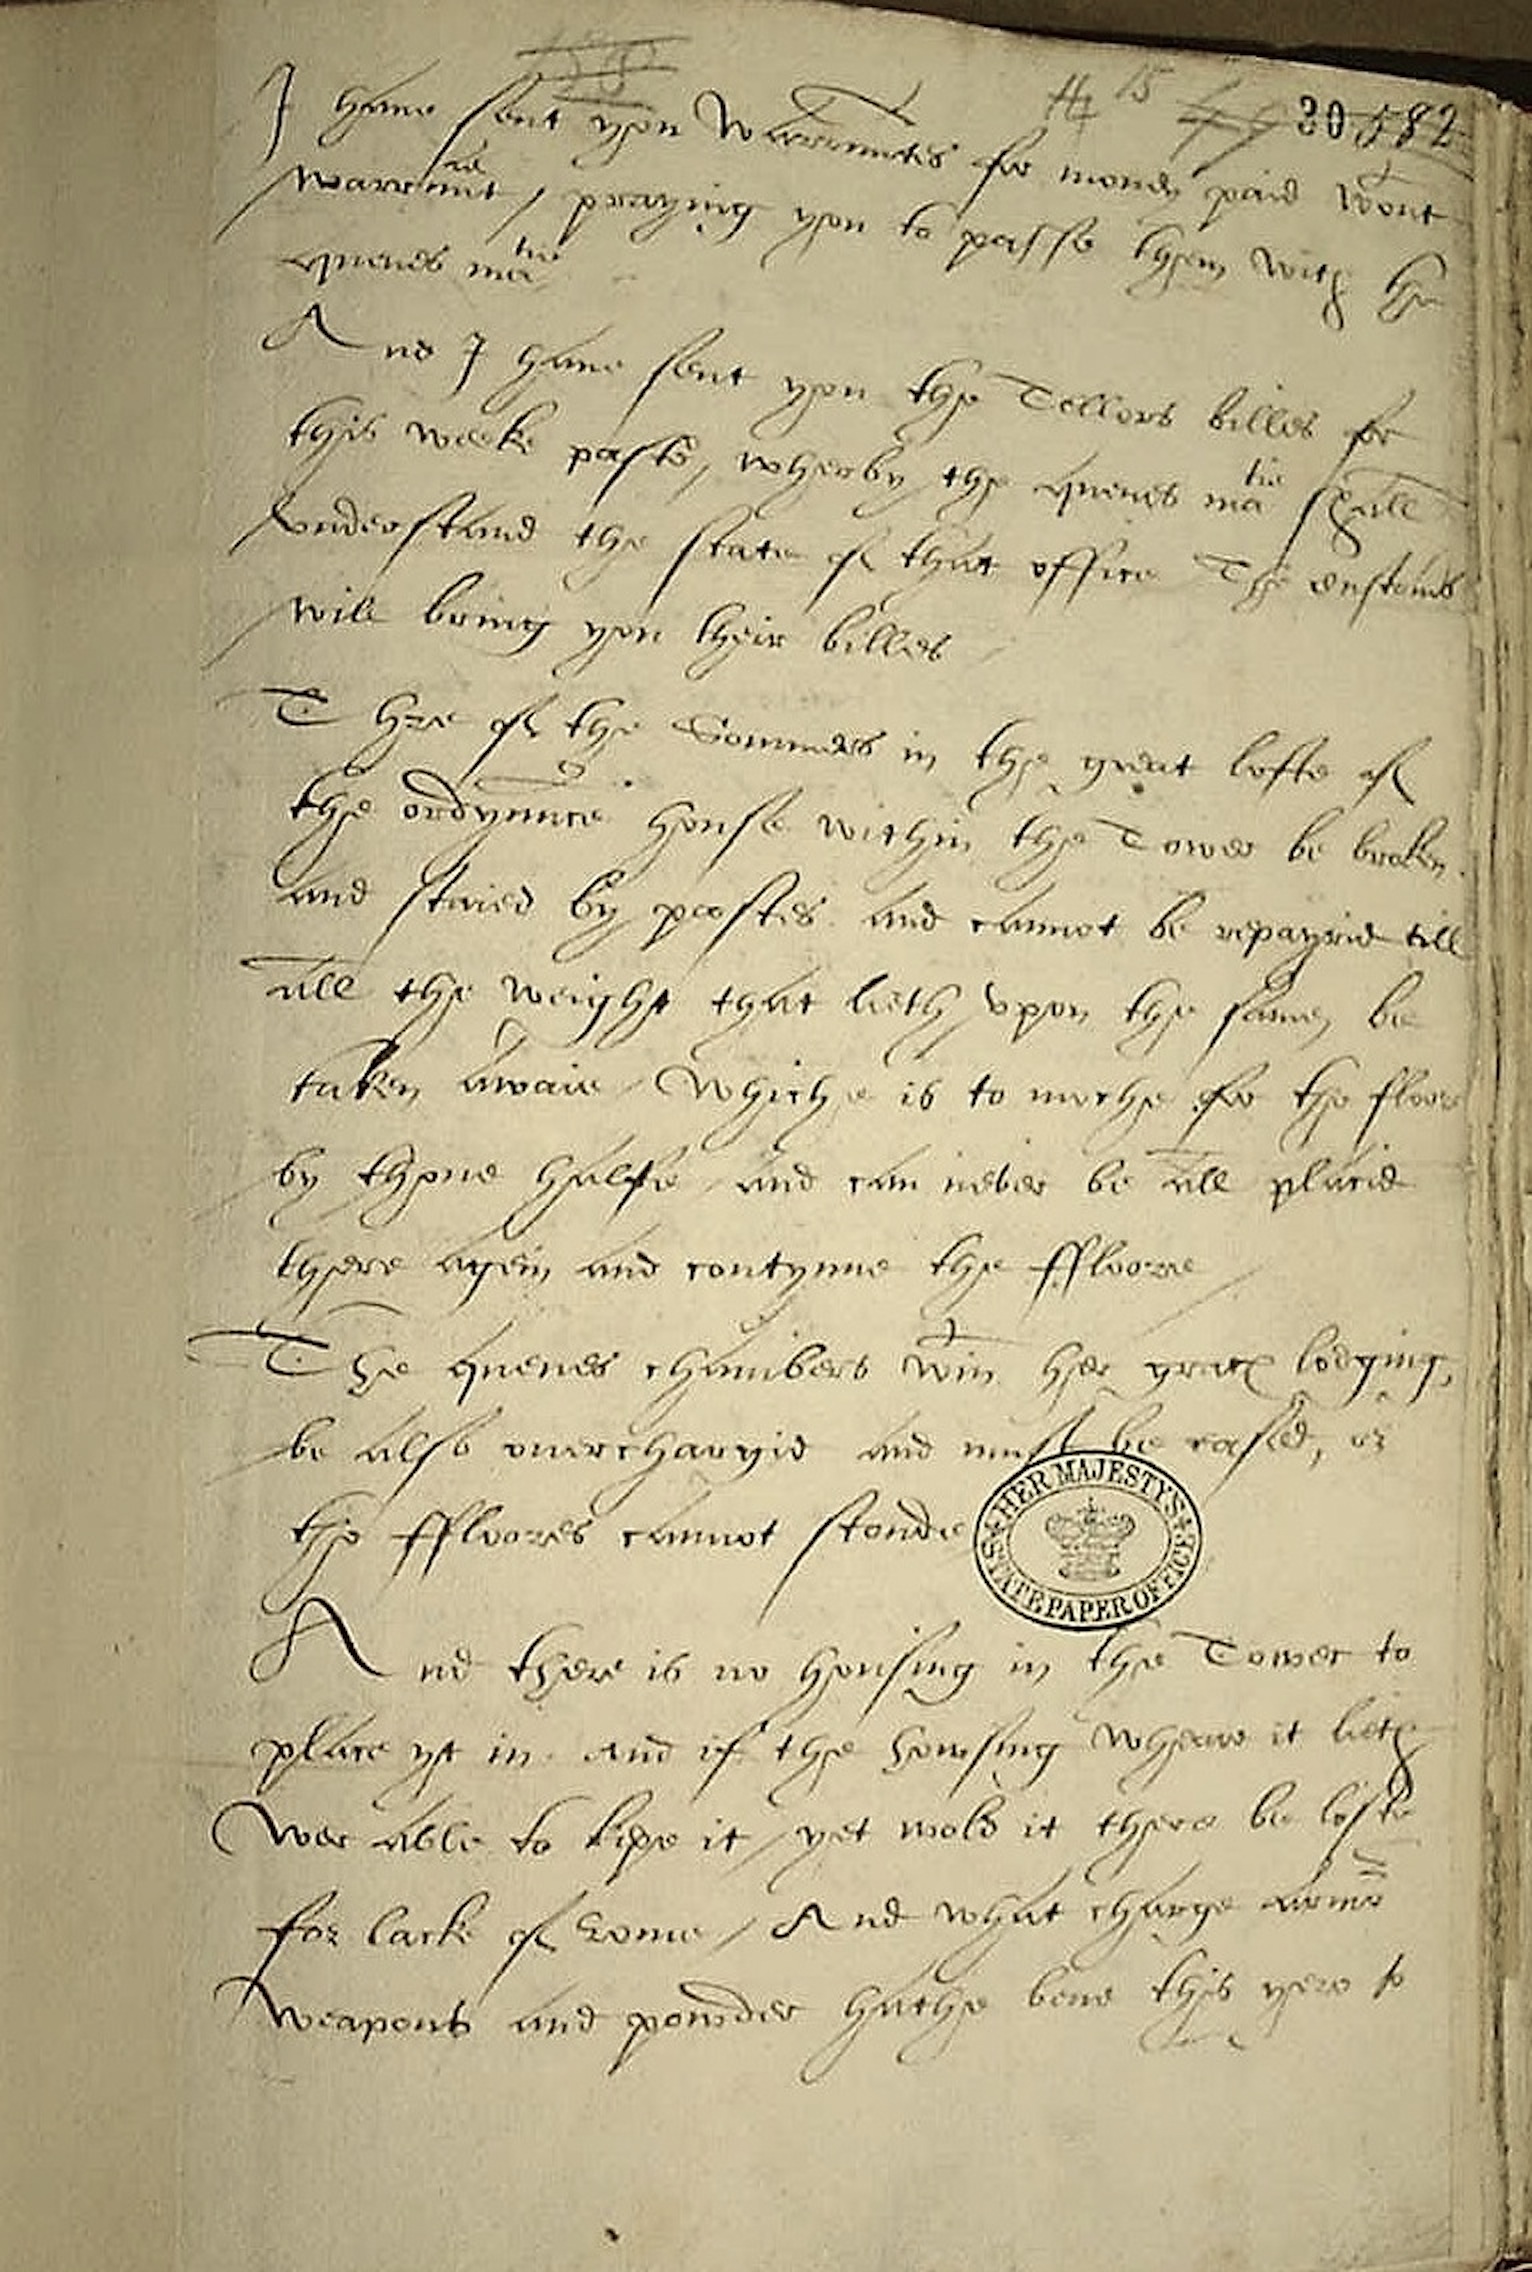 14 15 30 582
I haue sent you Warrauntes for money paid wtout
warraunt / praying you to passe them with the
quenes matie
And I haue sent you the Tellors billes for
this weeke paste, wherby the quenes matie shall
vnderstand the state of that office The Customs
will bring you their billes
Thre of the Sommers in the great lofte of
the ordynnce house within the Tower be broken
and staied by postes and cannot be repayrid till
all the weight that lieth vpon the same be
taken awaie / Whiche is to moche for the floor
by thone halfe / and can never be all placid
there agein and contynue the ffloore /
The quenes chambers wtin her grace lodging,
be also ouerchargid and must be eased, or
the ffloores cannot stonde
HER MAJESTYS STATE PAPER OFFICE
And there is no housing in the Tower to
place yt in. And if the howsing wheare it lieth
wer able to kepe it / yet wold it there be loste
for lacke of rome / And what charge armor
weapons and powder hathe bene this yere to